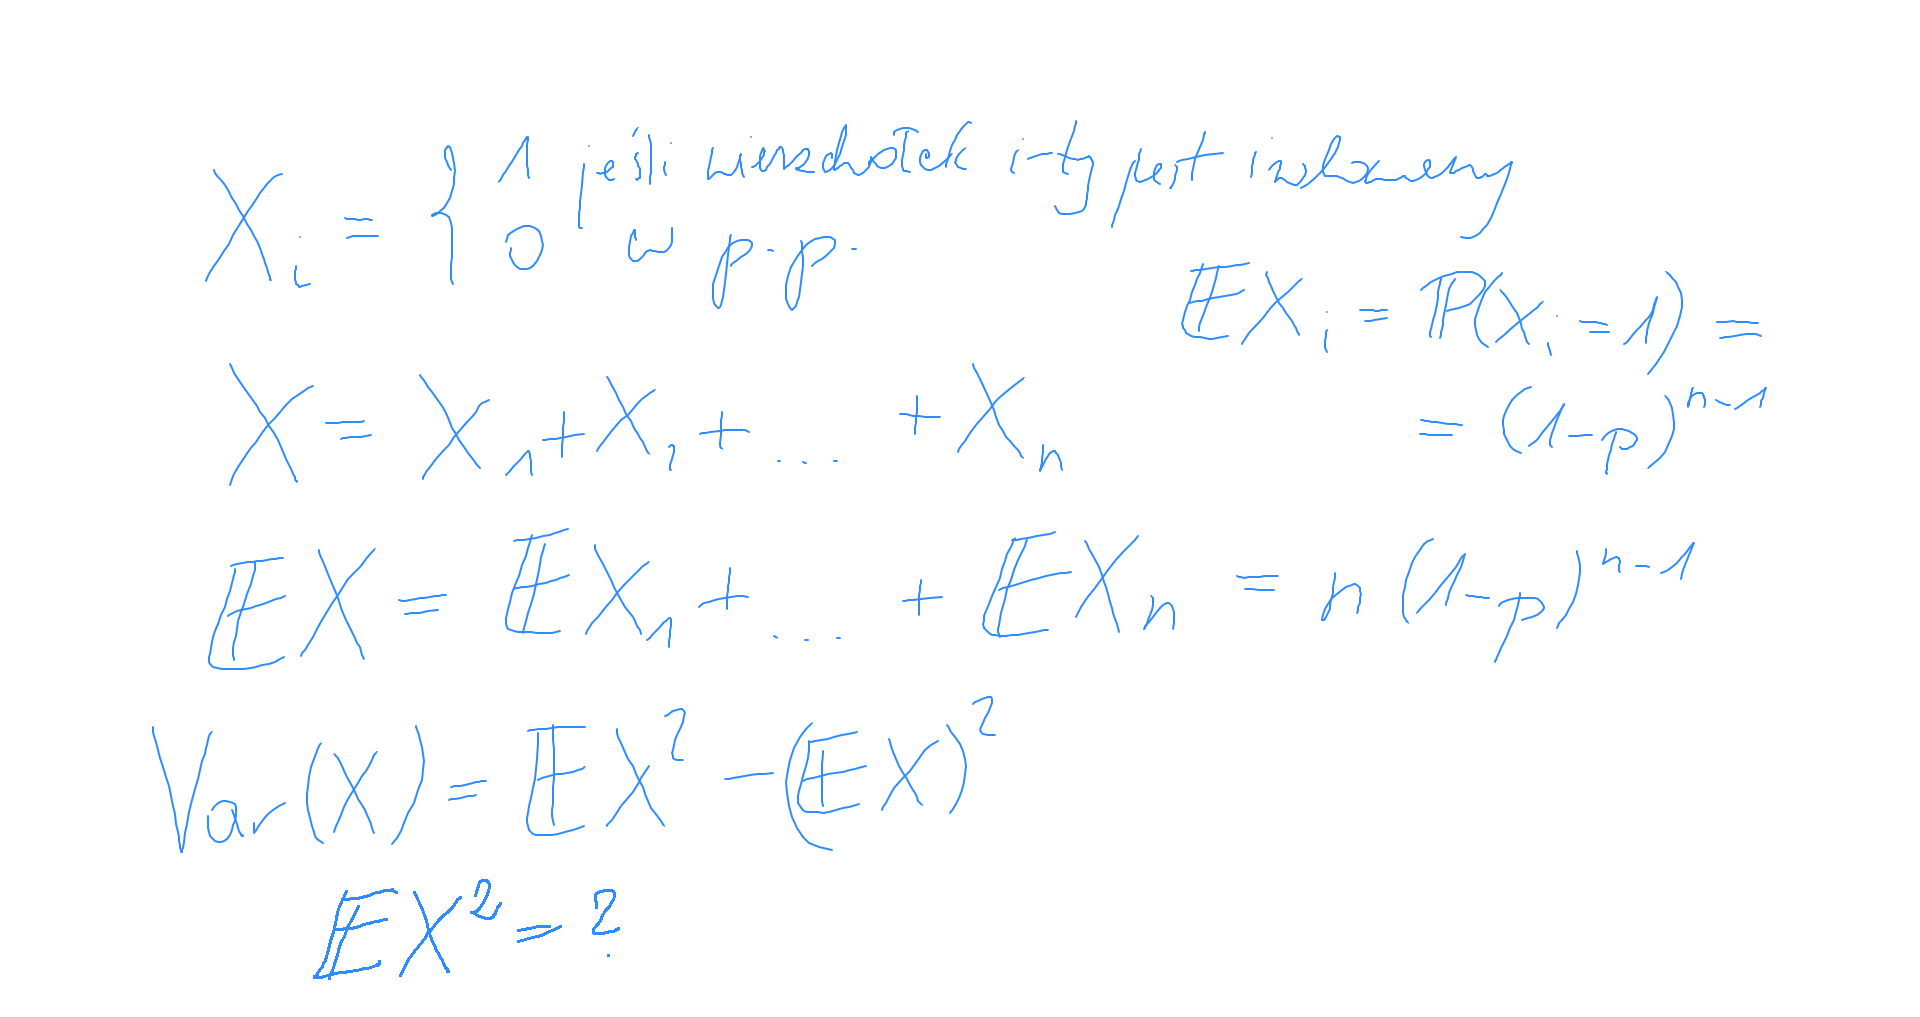 X_i = { 1 jeśli wierzchołek i-ty jest izolowany
0 w p.p.
EX_i = P(X_i = 1) =
= (1-p)^{n-1}
X = X_1 + X_2 + ... + X_n
EX = EX_1 + ... + EX_n = n(1-p)^{n-1}
Var(X) = EX^2 - (EX)^2
EX^2 = ?